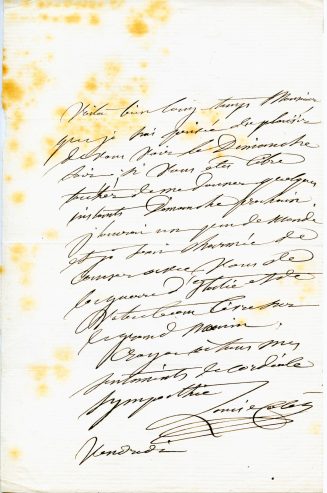 Voilà bien longtemps Monsieur
que je suis privée du plaisir
de vous voir le Dimanche
soir si vous êtes libre
tachez de me donner quelques
instants Dimanche prochain.
j'aurai un peu de monde
et je serai charmée de
causer avec vous de
la guerre d'Italie et de
le grand
Croyez à tous mes
sentiments de cordiale
sympathie
Louise Colet
Vendredi